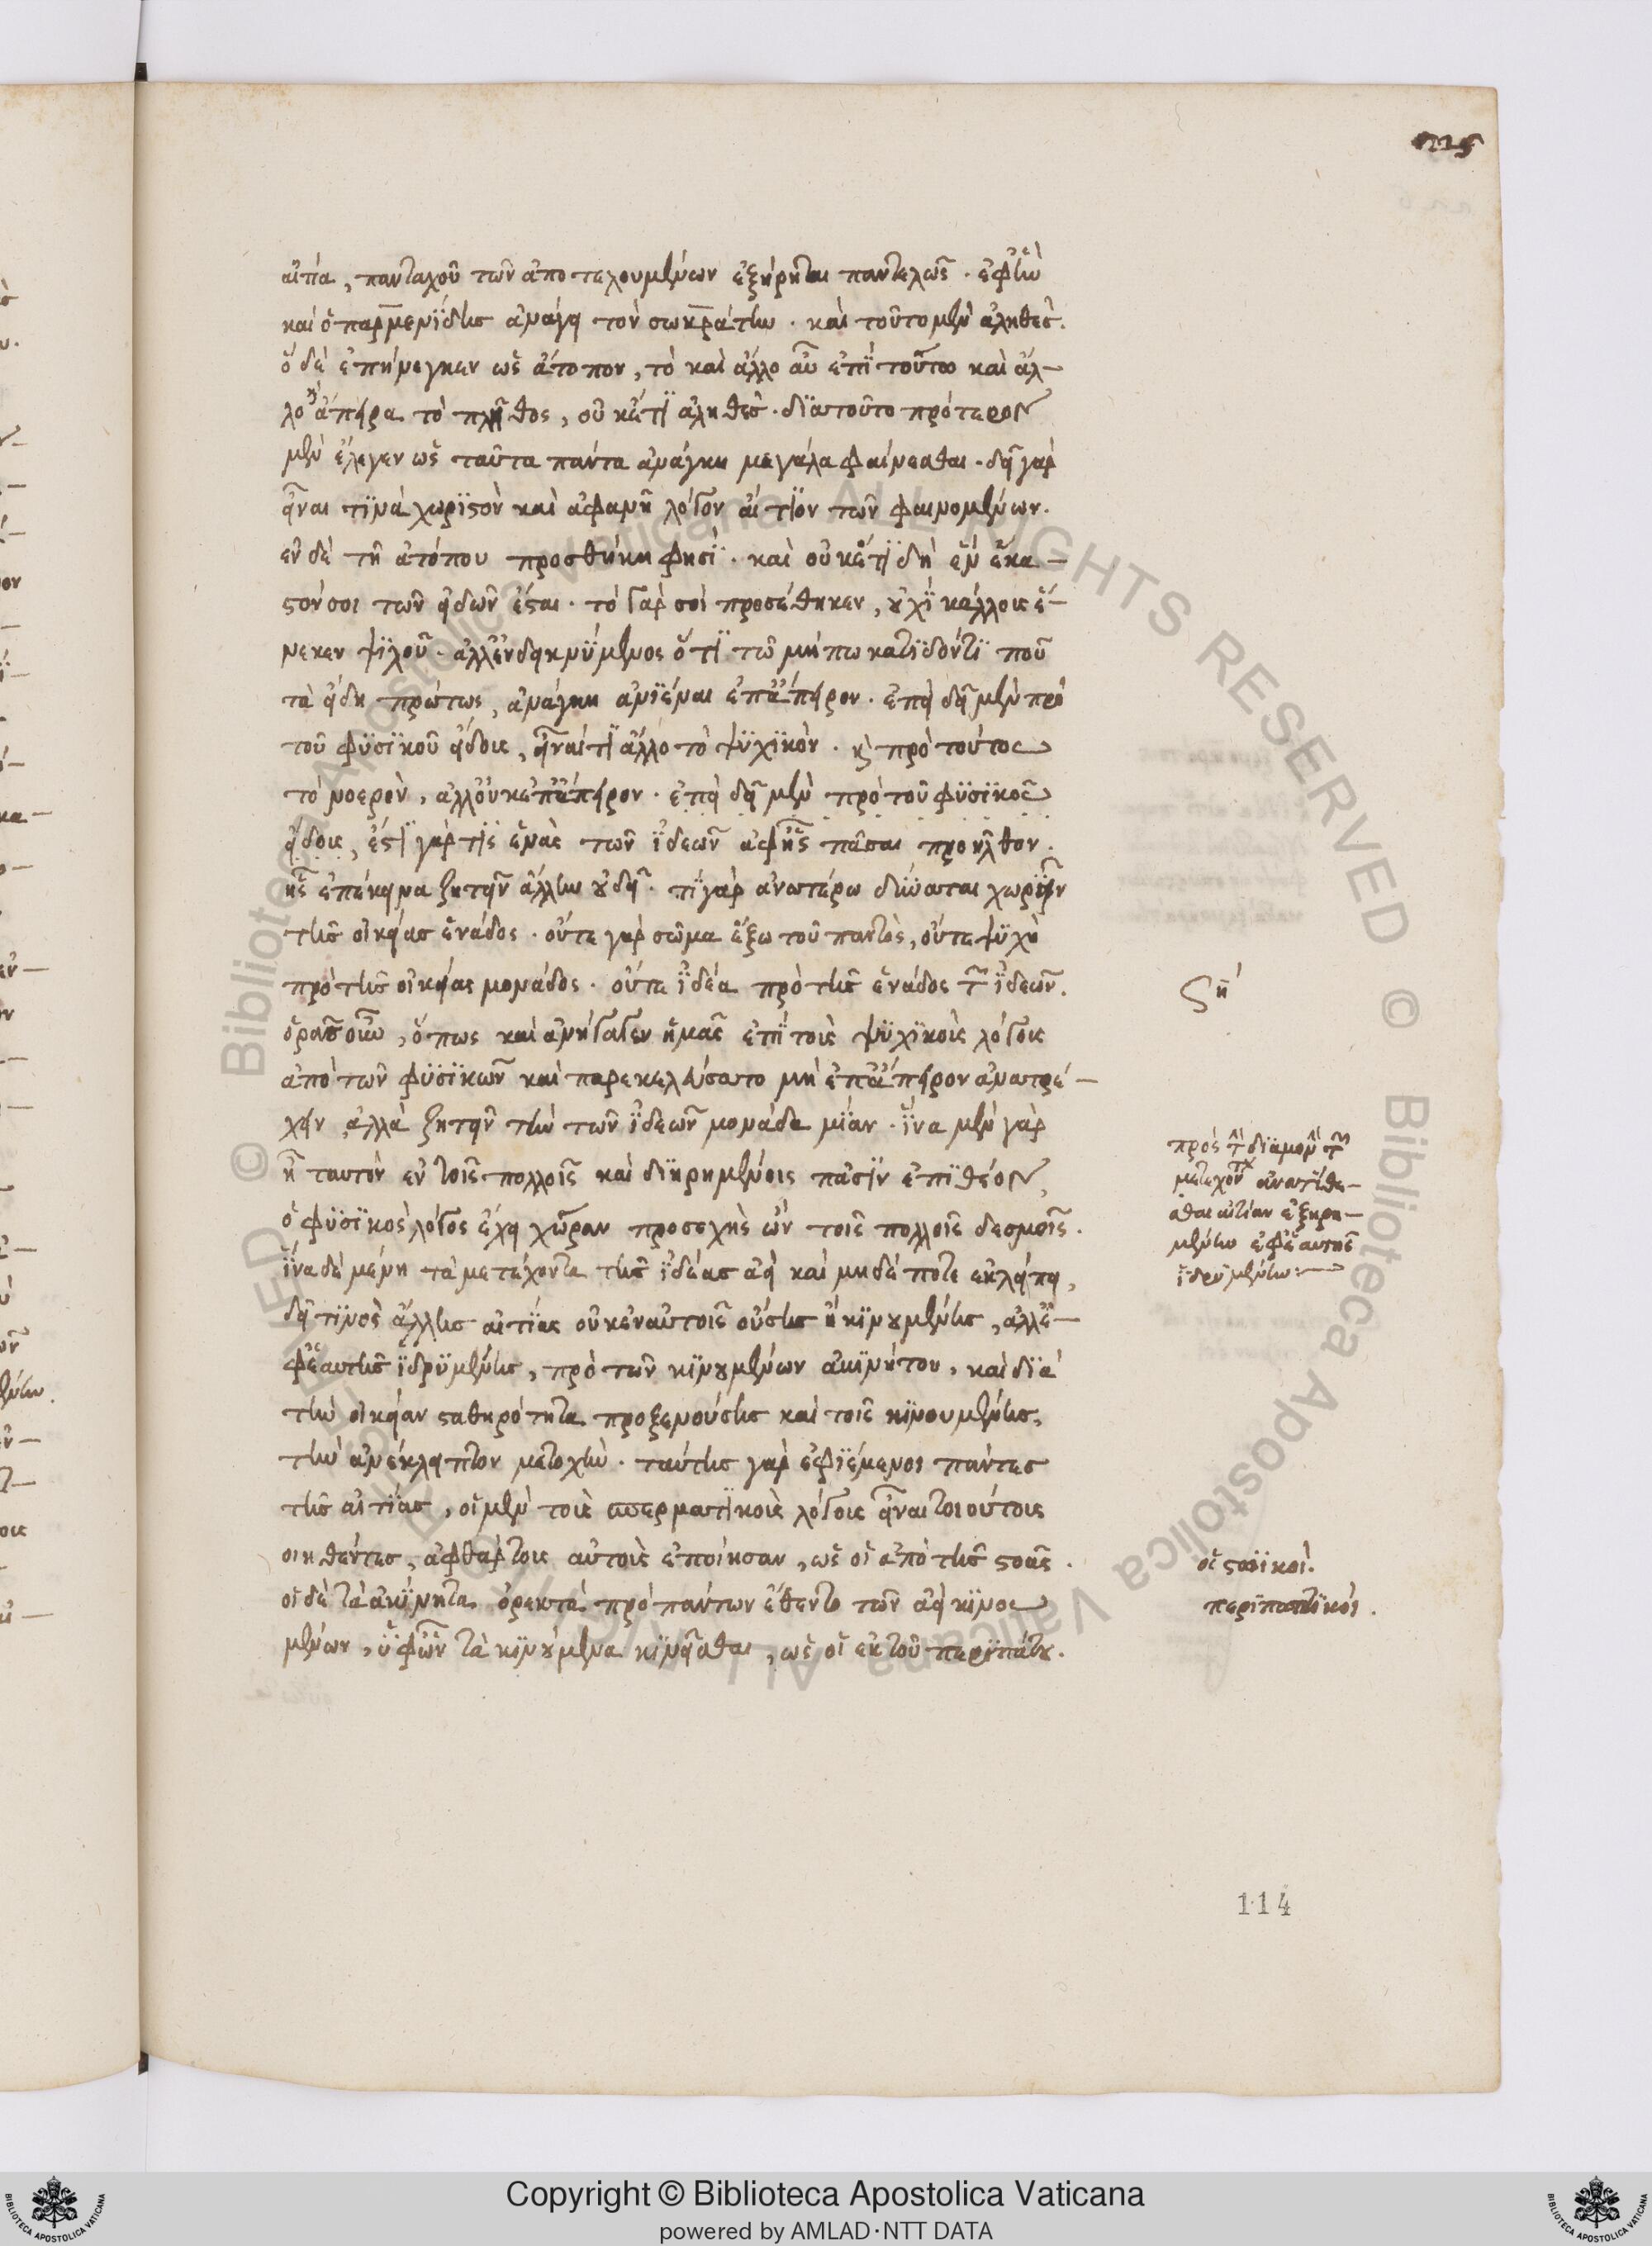 αἴτια, πανταχοῦ τῶν ἀποτελουμένων ἐξήρηται παντελῶς. ἐφ' ἣν
καὶ ὁ παρμενίδης ἀνάγει τὸν σωκράτην. καὶ τοῦτο μὲν ἀληθές.
ὃ δὲ ἐπήνεγκεν ὡς ἄτοπον, τὸ καὶ ἄλλο αὖ ἐπὶ τούτω καὶ ἄλ-
λο ἢ ἄπειρα τὸ πλῆθος, οὐκέτι ἀληθές. διατοῦτο πρότερον
μὲν ἔλεγεν ὡς ταῦτα πάντα ἀνάγκη μεγάλα φαίνεσθαι. δεῖ γὰρ
εἶναι τινὰ χωριστὸν καὶ ἀφανῆ λόγον αἴτιον τῶν φαινομένων.
ἐν δὲ τῆ ἀτόπου προσθήκη φησί. καὶ οὐκέτι δὴ ἓν ἕκα-
στόν σοι τῶν εἰδῶν ἔσται. τὸ γάρ σοι προσέθηκεν, οὐχὶ κάλλους ἕ-
νεκεν ψιλοῦ. ἀλλ' ἐνδεικνύμενος ὅτι τῶ μήπω κατιδόντι που
τὰ εἴδη πρώτως, ἀνάγκη ἀνιέναι ἐπ' ἄπειρον. ἐπεὶ δεῖ μὲν πρὸ
τοῦ φυσικοῦ εἴδους, εἶναί τι ἄλλο τὸ ψυχικόν. κ πρὸ τούτου
τὸ νοερόν, ἀλλ' οὐκ ἐπ' ἄπειρον. ἐπεὶ δεῖ μὲν πρὸ τοῦ φυσικοῦ
εἴδους, ἔστι γάρ τις ἑνὰς τῶν ἰδεῶν ἀφ' ἧς πᾶσαι προῆλθον.
ἧς ἐπέκεινα ζητεῖν ἄλλην οὐ δεῖ. τί γὰρ ἀνωτέρω δύναται χωρεῖν
τῆς οἰκείας ἑνάδος. οὔτε γὰρ σῶμα ἔξω τοῦ παντὸς, οὔτε ψυχὴ
πρὸ τῆς οἰκείας μονάδος. οὔτε ἰδέα πρὸ τῆς ἑνάδος τῶν ἰδεῶν.
ση
ὁρᾶς οὖν, ὅπως καὶ ἀνήγαγεν ἡμᾶς ἐπὶ τοὺς ψυχικοὺς λόγους
ἀπὸ τῶν φυσικῶν καὶ παρεκελεύσατο μὴ ἐπ' ἄπειρον ἀνατρέ-
χειν ἀλλὰ ζητεῖν τὴν τῶν ἰδεῶν μονάδα μίαν. ἵνα μὲν γὰρ
ἦ ταυτὸν ἐν τοῖς πολλοῖς καὶ διηρημένοις πᾶσιν ἐπιθέον,
ὁ φυσικὸς λόγος ἔχει χώραν προσεχὴς ὢν τοῖς πολλοῖς δεσμοῖς.
ἵνα δὲ μένη τὰ μετέχοντα τῆς ἰδέας ἀεὶ καὶ μηδέποτε ἐκλείπη,
δεῖ τινὸς ἄλλης αἰτίας οὐκ ἐν αὐτοῖς οὔσης ἢ κινουμένης, ἀλλ' ἐ-
φ' ἑαυτῆς ἱδρυμένης, πρὸ τῶν κινουμένων ἀκινήτου, καὶ διὰ
τὴν οἰκείαν σταθηρότητα προξενούσης καὶ τοῖς κινουμένης,
τὴν ἀνέκλειπτον μετοχήν. ταύτης γὰρ ἐφιέμενοι πάντες
τῆς αἰτίας, οἱ μὲν τοὺς σπερματικοὺς λόγους εἶναι τοιούτους
οἰηθέντες, ἀφθάρτους αὐτοὺς ἐποίησαν, ὡς οἱ ἀπὸ τῆς στοᾶς.
οἱ δὲ τὰ ἀκίνητα ὀρεκτὰ πρὸ πάντων ἔθεντο τῶν ἀεὶ κινου
μένων, ὑφ' ὧν τὰ κινούμενα κινεῖσθαι, ὡς οἱ ἐκ τοῦ περιπάτου.
πρὸς τὴν διαμονὴν τῶν
μετεχόντων ἀνατίθε-
σθαι αἰτίαν ἐξῃρη-
μένην ἐφ' ἑαυτῆς
ἱδρυμένην:
οἱ στωϊκοί.
περιπατητικοί.
114